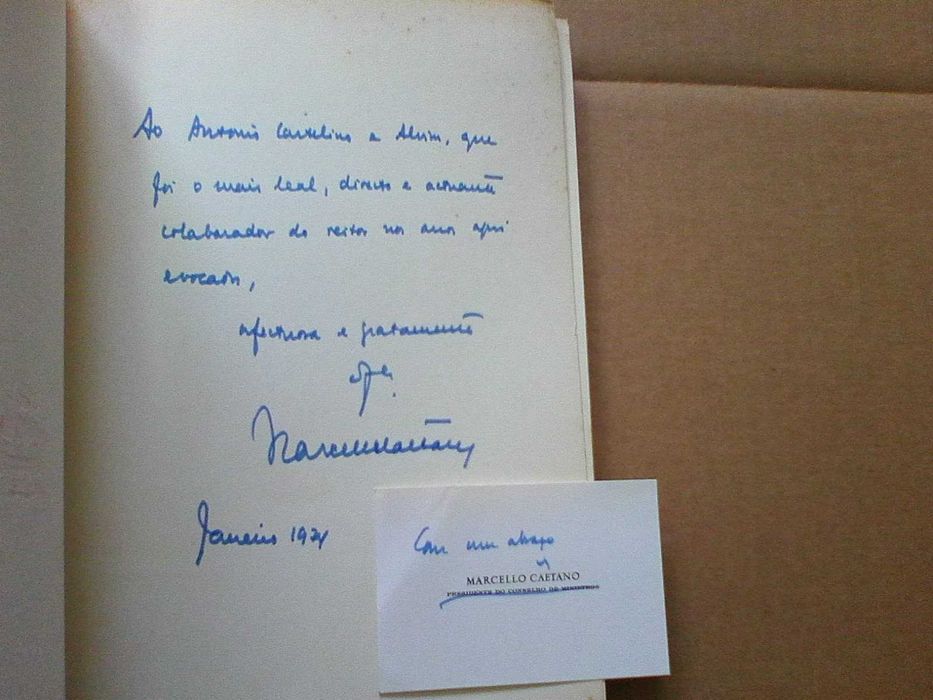 Ao Antonio Castelino e Alvim, que
foi o mais leal, directo e actuante
colaborador do reitor nos anos aqui
evocados,
afectuosa e gratamente
of.
Marcello Caetano
Janeiro 1974
Com um abraço
MARCELLO CAETANO
PRESIDENTE DO CONSELHO DE MINISTROS